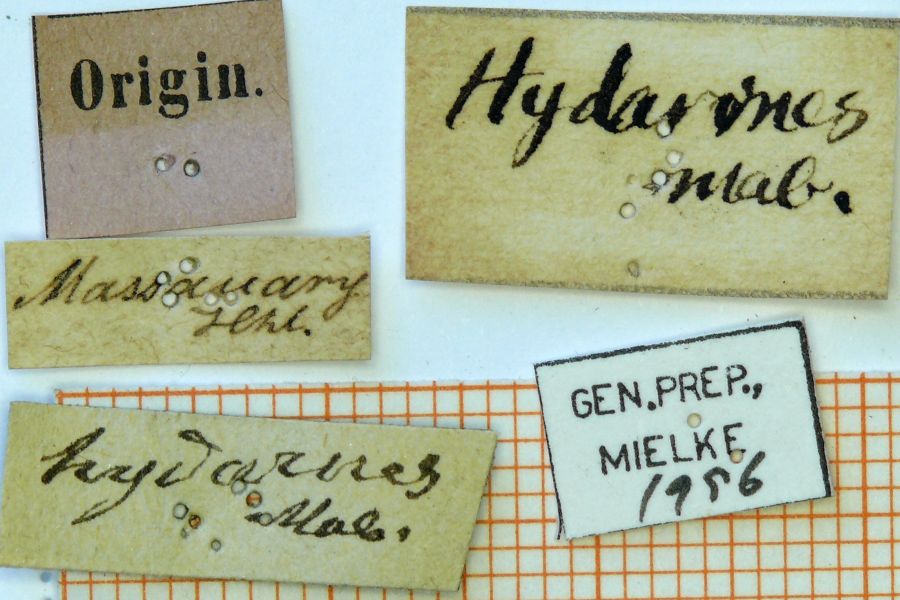 Origin.
Hydarines
Mab.
Massauary
Hhl.
hydarnes
Mab.
GEN.PREP.,
MIELKE
1956